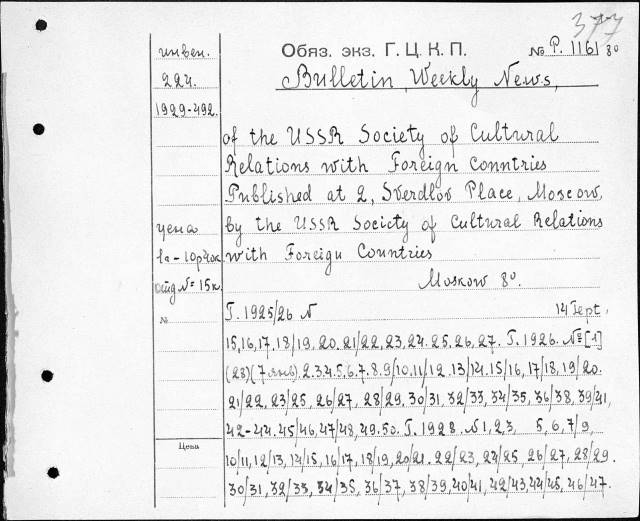 377
инвен. Обяз. экз. Г. Ц. К. П. № P. 1161 8º
224. Bulletin, Weekly News,
1929-492.
of the USSR Society of Cultural
Relations with Foreign Conntries
Published at 2, Sverdlov Place, Moscow,
цена by the USSR Society of Cultural Relations
with Foreign Countries
отд № 15к. Moskow 8º.
№ Г. 1925/26 N 14
15,16,17.18/19,20.21/22,23,24.25.26,27. Г. 1926. №[1]
(28)(7 янв).2.3.4.5.6.7.8.9/10.11/12.13/14.15/16,17/18,19/20.
21/22,23/25,26/27,28/29.30/31,32/33,34/35,36/38,39/41,
42-44.45/46,47/48,49.50. Г. 1928. N 1,2,3, 5,6,7/9,
Цена
10/11,12/13,14/15,16/17,18/19,20/21.22/23,24/25,26/27,28/29.
30/31,32/33,34/35,36/37,38/39,40/41,42/43,44/45,46/47.